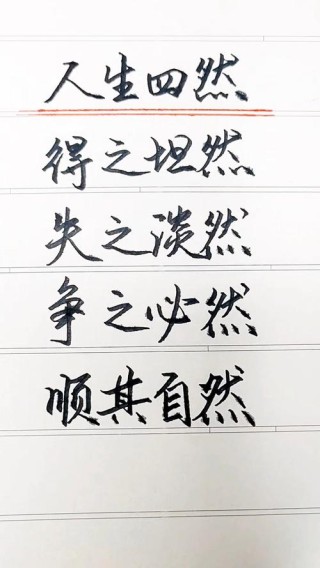 人生四然
得之坦然
失之淡然
争之必然
顺其自然